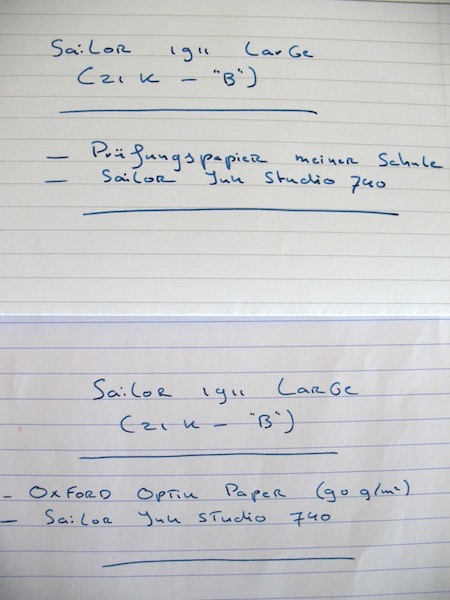 Sailor 1911 Large
(21 K – "B")
– Prüfungspapier meiner Schule
– Sailor Ink Studio 740
Sailor 1911 Large
(21 K – "B")
– Oxford Optik Paper (90 g/m²)
– Sailor Ink Studio 740